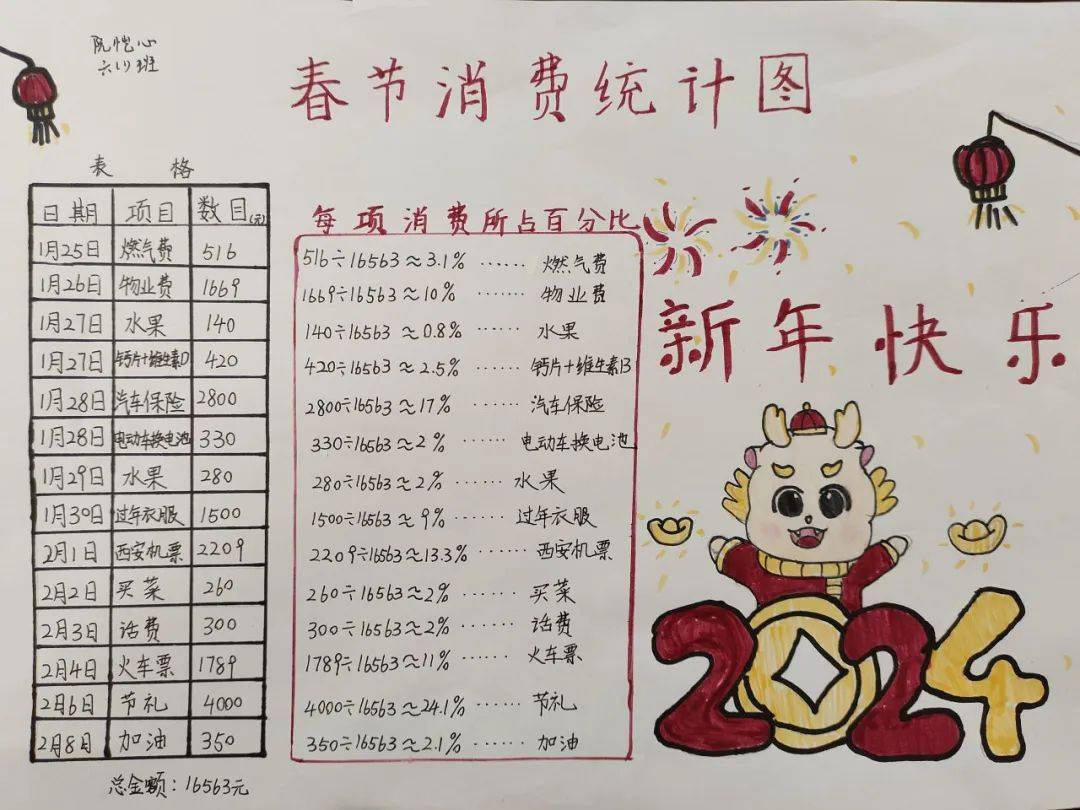 阮恺心
六(1)班
春节消费统计图
表 格
日期 项目 数目(元)
1月25日 燃气费 516
1月26日 物业费 1669
1月27日 水果 140
1月27日 钙片+维生素D 420
1月28日 汽车保险 2800
1月28日 电动车换电池 330
1月29日 水果 280
1月30日 过年衣服 1500
2月1日 西安机票 2209
2月2日 买菜 260
2月3日 话费 300
2月4日 火车票 1789
2月6日 节礼 4000
2月8日 加油 350
总金额：16563元
每项消费所占百分比
516÷16563≈3.1% …… 燃气费
1669÷16563≈10% …… 物业费
140÷16563≈0.8% …… 水果
420÷16563≈2.5% …… 钙片+维生素B
2800÷16563≈17% …… 汽车保险
330÷16563≈2% …… 电动车换电池
280÷16563≈2% …… 水果
1500÷16563≈9% …… 过年衣服
2209÷16563≈13.3% …… 西安机票
260÷16563≈2% …… 买菜
300÷16563≈2% …… 话费
1789÷16563≈11% …… 火车票
4000÷16563≈24.1% …… 节礼
350÷16563≈2.1% …… 加油
新年快乐
2024